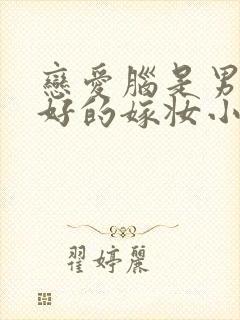 戀愛腦是男
好的嫁妝小
翟婷麗